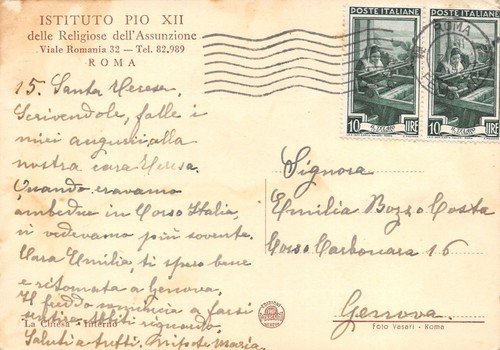 ISTITUTO PIO XII
delle Religiose dell'Assunzione
Viale Romania 32 — Tel. 82.989
ROMA
POSTE ITALIANE
POSTE ITALIANE
10 IL TELAIO LIRE
10 IL TELAIO LIRE
ROMA
15. Santa Teresa.
Scrivendole, falle i
miei auguri alla
nostra cara Teresa.
Quando eravamo
ambedue in Corso Italia,
ci vedevamo più sovente.
Cara Emilia, ti spero bene
e ritornata a Genova.
Il freddo comincia a farsi
sentire.
Saluti a tutti.
La Chiesa - Interno
Signora
Emilia Bozzo Costa
Corso Carbonara 16
Genova
Foto Vasari - Roma